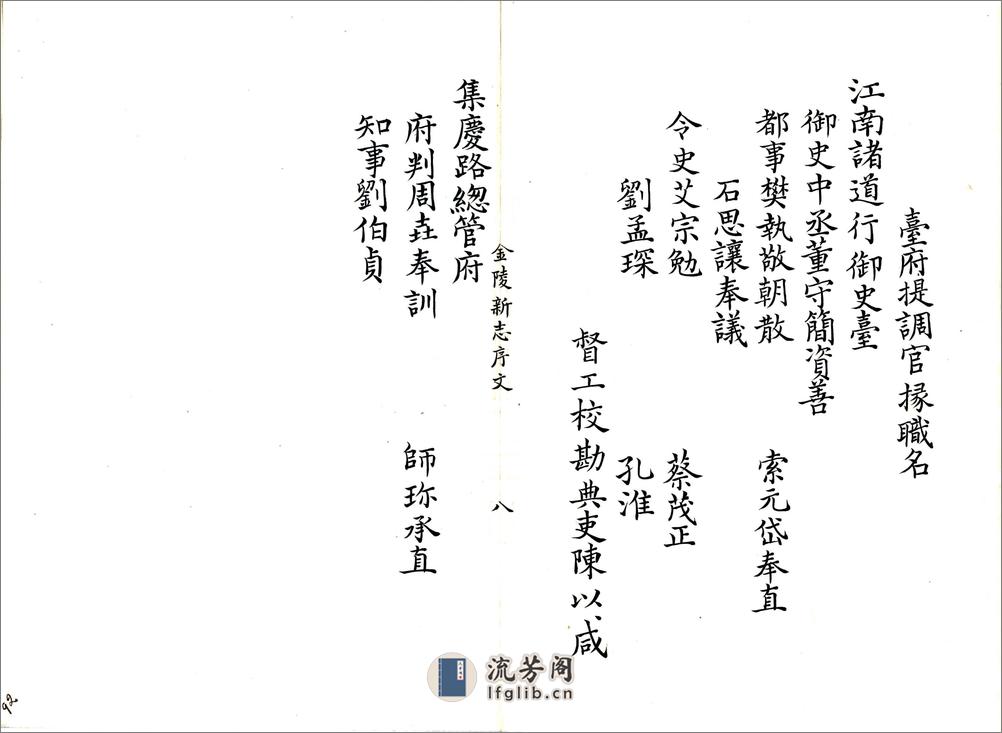 臺府提調官掾職名
江南諸道行御史臺
御史中丞董守簡資善
都事樊執敬朝散 索元岱奉直
石思讓奉議
令史艾宗勉 蔡茂正
劉孟琛 孔淮
督工校勘典吏陳以咸
金陵新志序文 八
集慶路總管府
府判周垚奉訓 師珎承直
知事劉伯貞
流芳阁
lfglib.cn
92